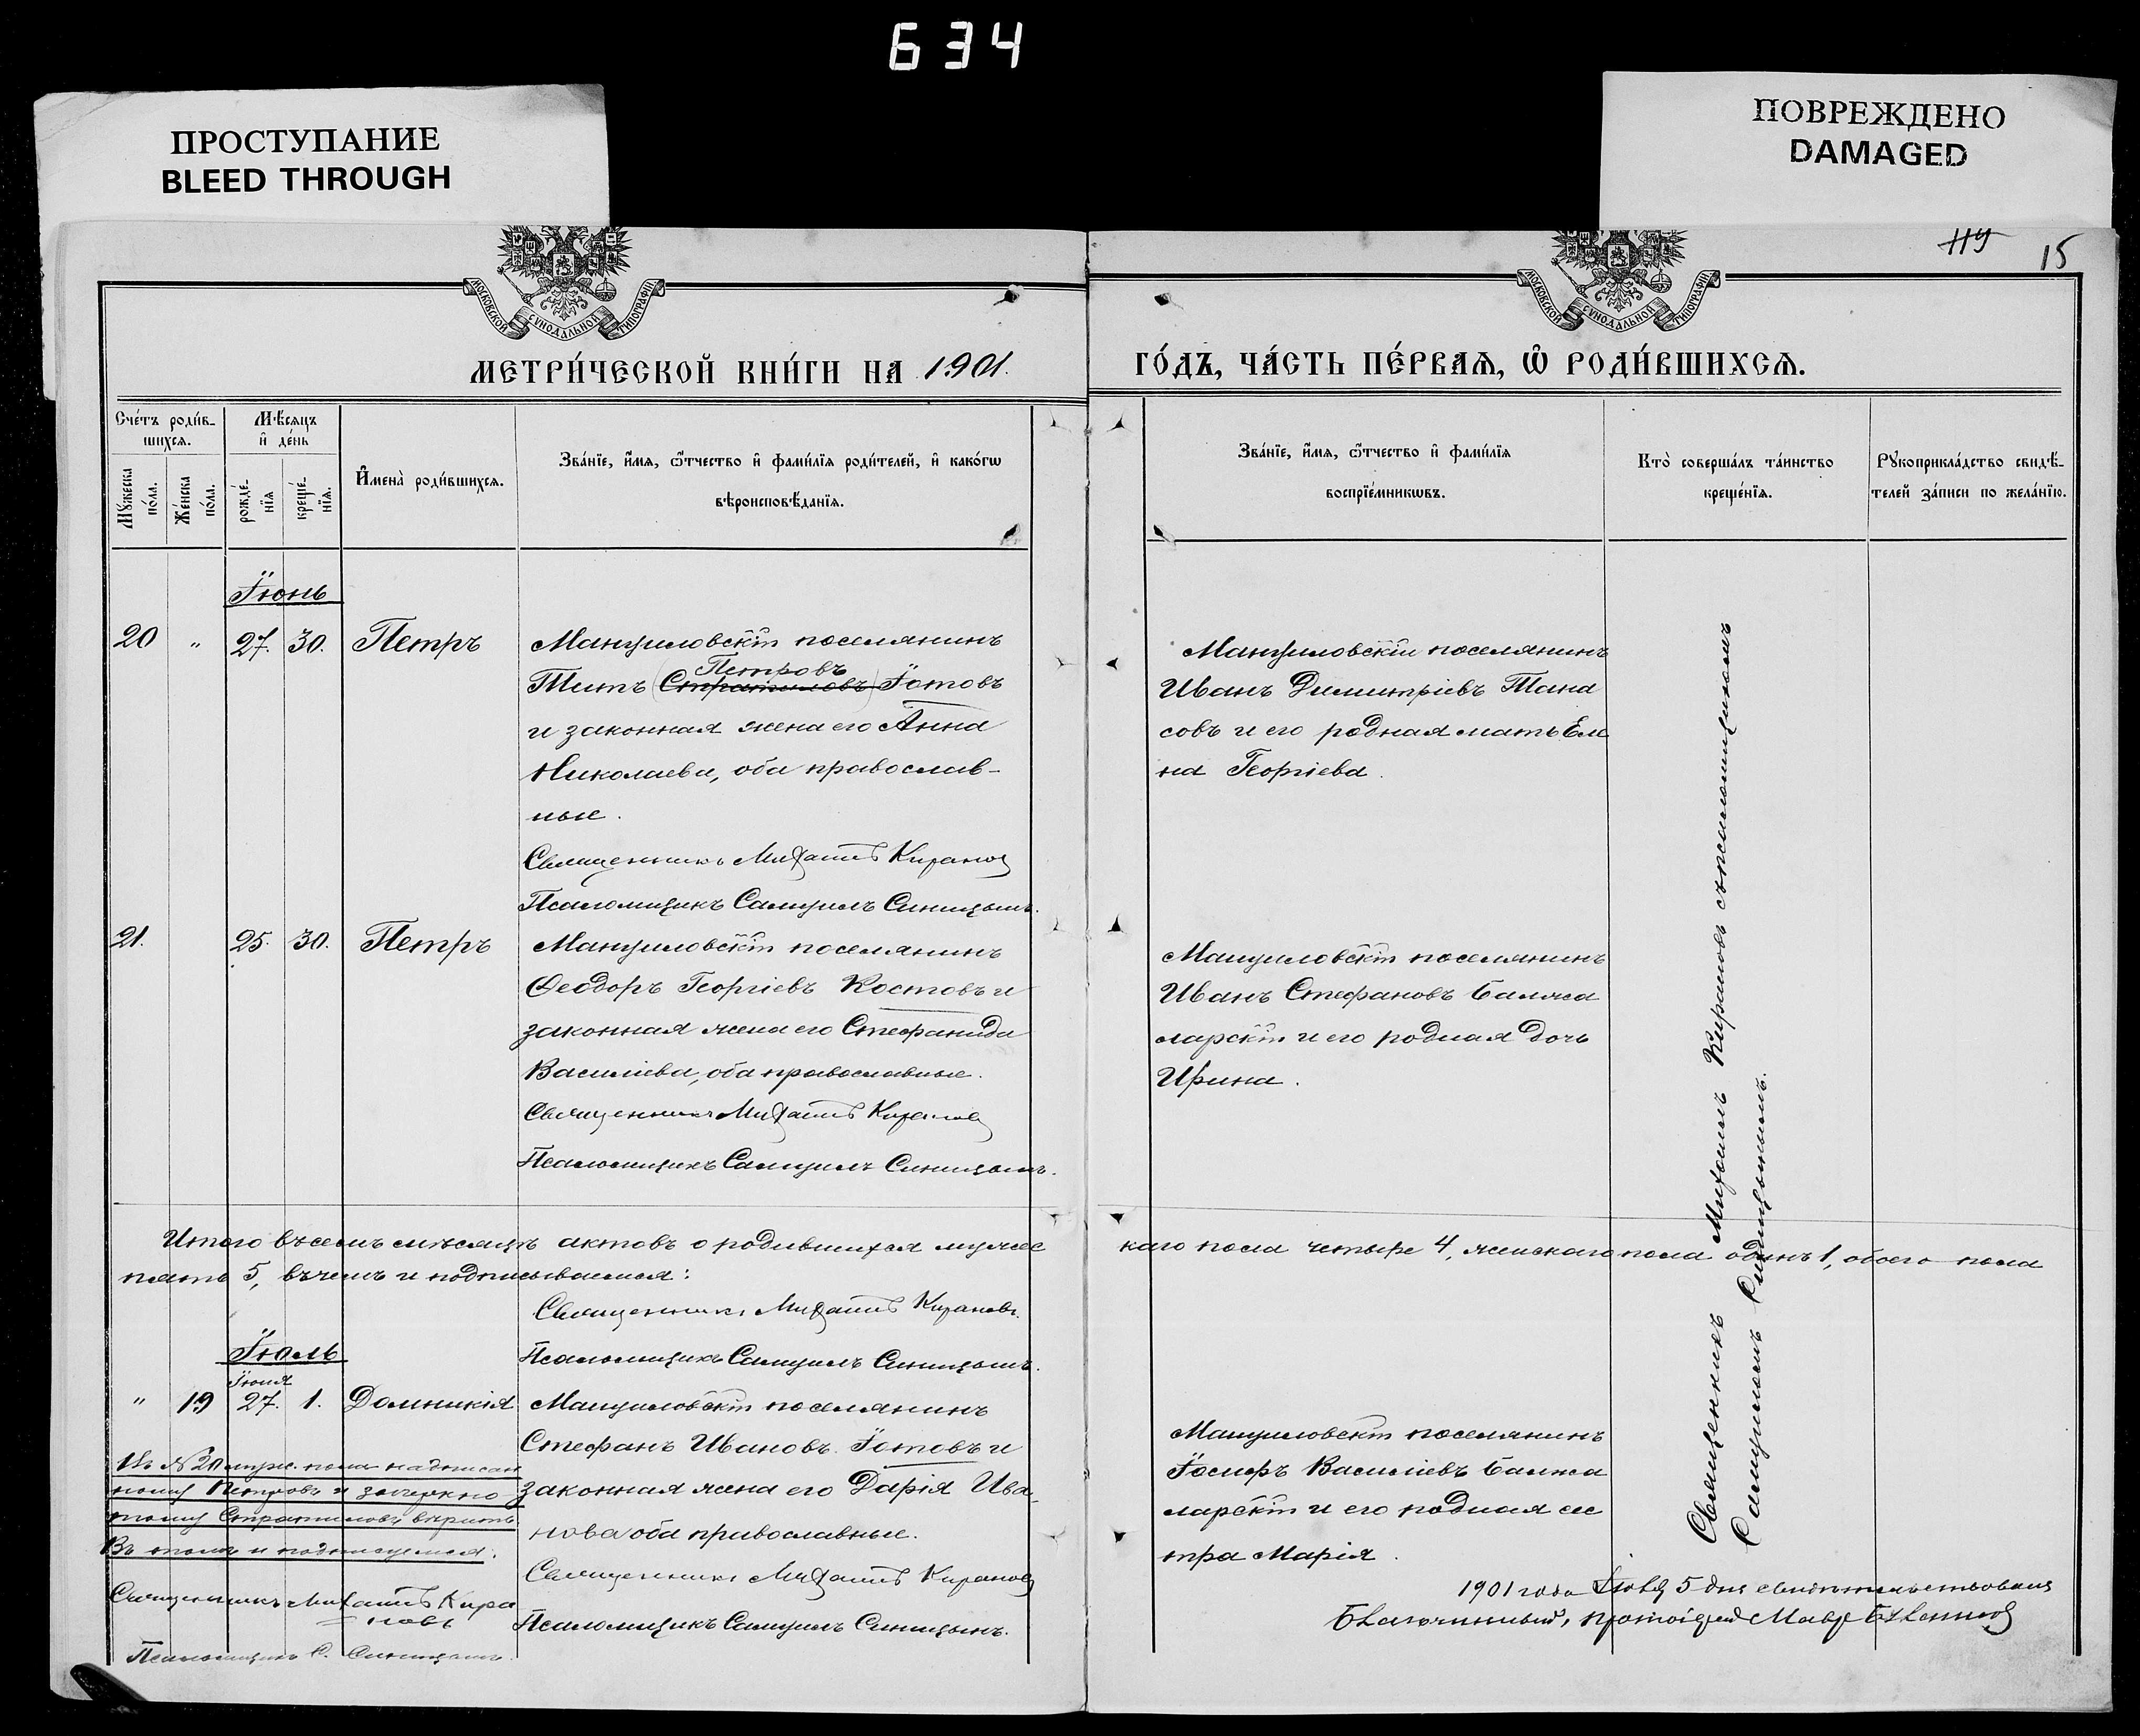 634
ПРОСТУПАНИЕ
BLEED THROUGH
ПОВРЕЖДЕНО
DAMAGED
119
15
МОСКОВСКОЙ СѴНОДАЛЬНОЙ ТИПОГРАФІИ
МОСКОВСКОЙ СѴНОДАЛЬНОЙ ТИПОГРАФІИ
МЕТРИ́ЧЕСКОЙ КНИ́ГИ НА 1901.
ГО́ДЪ, ЧА́СТЬ ПЕ́РВАѦ, Ѽ РОДИ́ВШИХСѦ.
Сче́тъ роди́в-
шихсѧ.
Мꙋжеска по́ла.
Же́нска по́ла.
Мѣ́сяцъ
и҆ де́нь
рожде́-
нїѧ
креще́-
нїѧ.
И҆мена̀ роди́вшихсѧ.
Зва́нїе, и҆́мѧ, ѻ҆́тчество и҆ фами́лїѧ роди́телей, и҆ како́гѡ
вѣроисповѣ́данїѧ.
Зва́нїе, и҆́мѧ, ѻ҆́тчество и҆ фами́лїѧ
воспрїе́мникѡвъ.
Кто̀ соверша́лъ та́инство
креще́нїѧ.
Рꙋкоприкла́дство свидѣ́-
телей за́писи по жела́нїю.
Іюнь
20 " 27. 30. Петръ
Манзуловскій поселянинъ
Петровъ
Титъ (Стратиловъ) Іотовъ
и законная жена его Анна
Николаева, оба православ-
ные.
Священникъ Михаилъ Кирановъ
Псаломщикъ Самуилъ Синицынъ.
Иванъ Димитріевъ Тана
совъ и его родная мать Еле
на Георгіева.
21. 25. 30. Петръ
поселянинъ
Ѳеодоръ Георгіевъ Костовъ и
законная жена его Стефанида
Василіева, оба православные.
Священникъ Михаилъ Кирановъ
Псаломщикъ Самуилъ Синицынъ.
поселянинъ
Иванъ Стефановъ Балжа
ларскій и его родная дочь
Ирина.
Итого въ семъ мѣсяцѣ актовъ о родившихся мужес
каго пола четыре 4, женскаго пола одинъ 1, обоего пола
пять 5, въ чемъ и подписываемся:
Священникъ Михаилъ Кирановъ.
Псаломщикъ Самуилъ Синицынъ.
Іюль
Іюня
" 19 27. 1. Домникія
поселянинъ
Стефанъ Ивановъ Іотовъ и
законная жена его Дарія Ива-
нова оба православные.
Священникъ Михаилъ Кирановъ
Псаломщикъ Самуилъ Синицынъ.
поселянинъ
Іосифъ Василіевъ Балжа
ларскій и его родная сес
тра Марія.
Въ №20 муж. пола надписан
ному Петровъ и зачеркну
тому Стратиловъ вѣрить
Въ томъ и подписуемся:
Священникъ Михаилъ Кира
новъ
Псаломщикъ С. Синицынъ.
Священникъ Михаилъ Кирановъ съ псаломщикомъ
Самуиломъ Синицынымъ.
1901 года 5 дня свидѣтельствовалъ
Благочинный, протоіерей